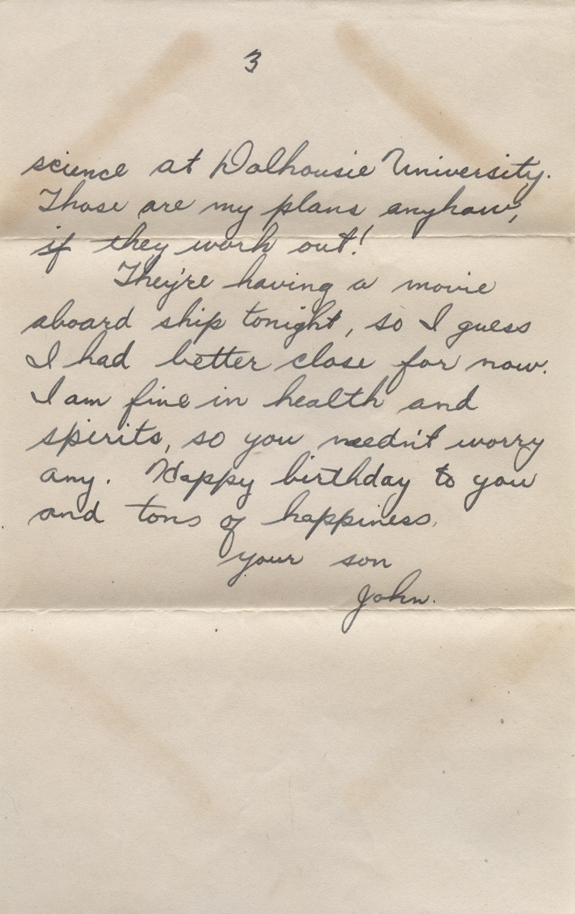 3
science at Dalhousie University.
Those are my plans anyhow,
if they work out!
They're having a movie
aboard ship tonight, so I guess
I had better close for now.
I am fine in health and
spirits, so you needn't worry
any. Happy birthday to you
and tons of happiness.
your son
John.